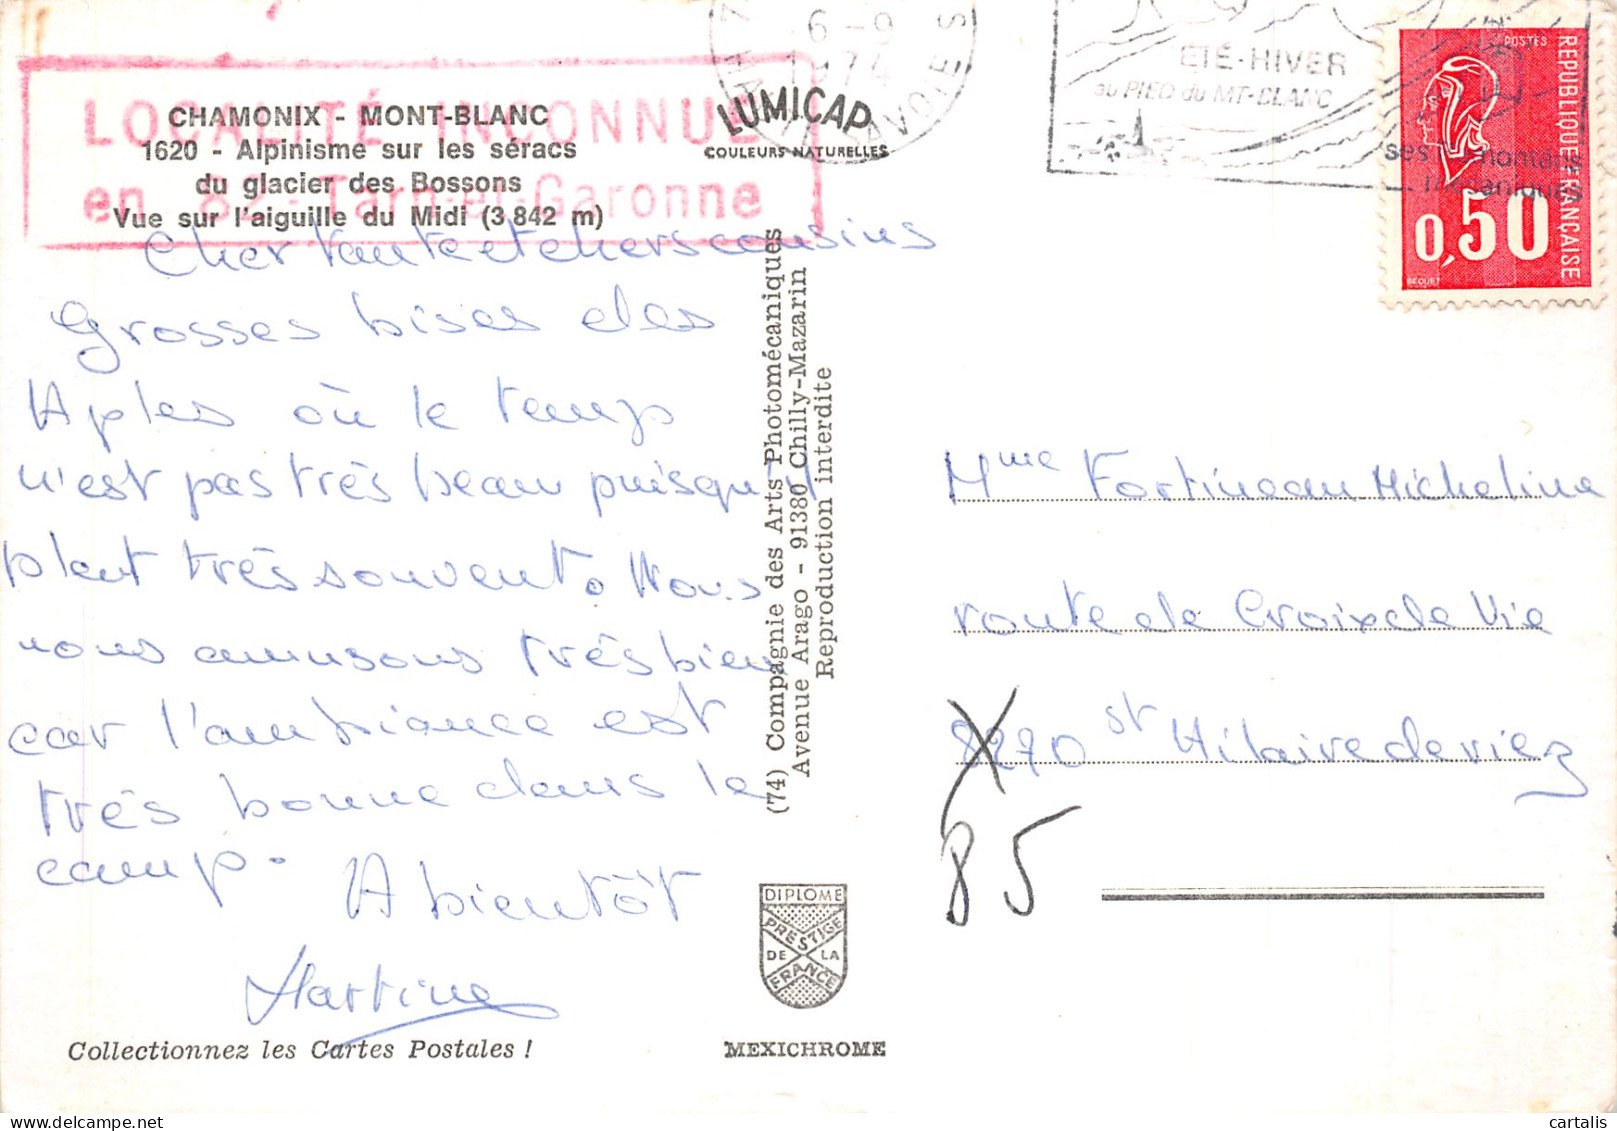 LOCALITÉ INCONNUE
en 82 - Tarn-et-Garonne
CHAMONIX - MONT-BLANC
1620 - Alpinisme sur les séracs
du glacier des Bossons
Vue sur l'aiguille du Midi (3 842 m)
Cher tante et chers cousins
Grosses bises des
Aples où le temps
n'est pas très beau puisqu'il
pleut très souvent. Nous
nous amusons très bien
car l'ambiance est
très bonne dans le
camp.
A bientôt
Martine
Collectionnez les Cartes Postales !
LUMICAP
COULEURS NATURELLES
(74) Compagnie des Arts Photomécaniques
Avenue Arago - 91380 Chilly-Mazarin
Reproduction interdite
DIPLOME
PRESTIGE
DE LA
FRANCE
MEXICHROME
6-9
1974
ÉTÉ-HIVER
au PIED du MT-BLANC
ses
POSTES
REPUBLIQUE FRANÇAISE
0,50
BEQUET
Mme Fortineau Micheline
route de Croix de Vie
8270 St Hilaire de riez
85
cartalis